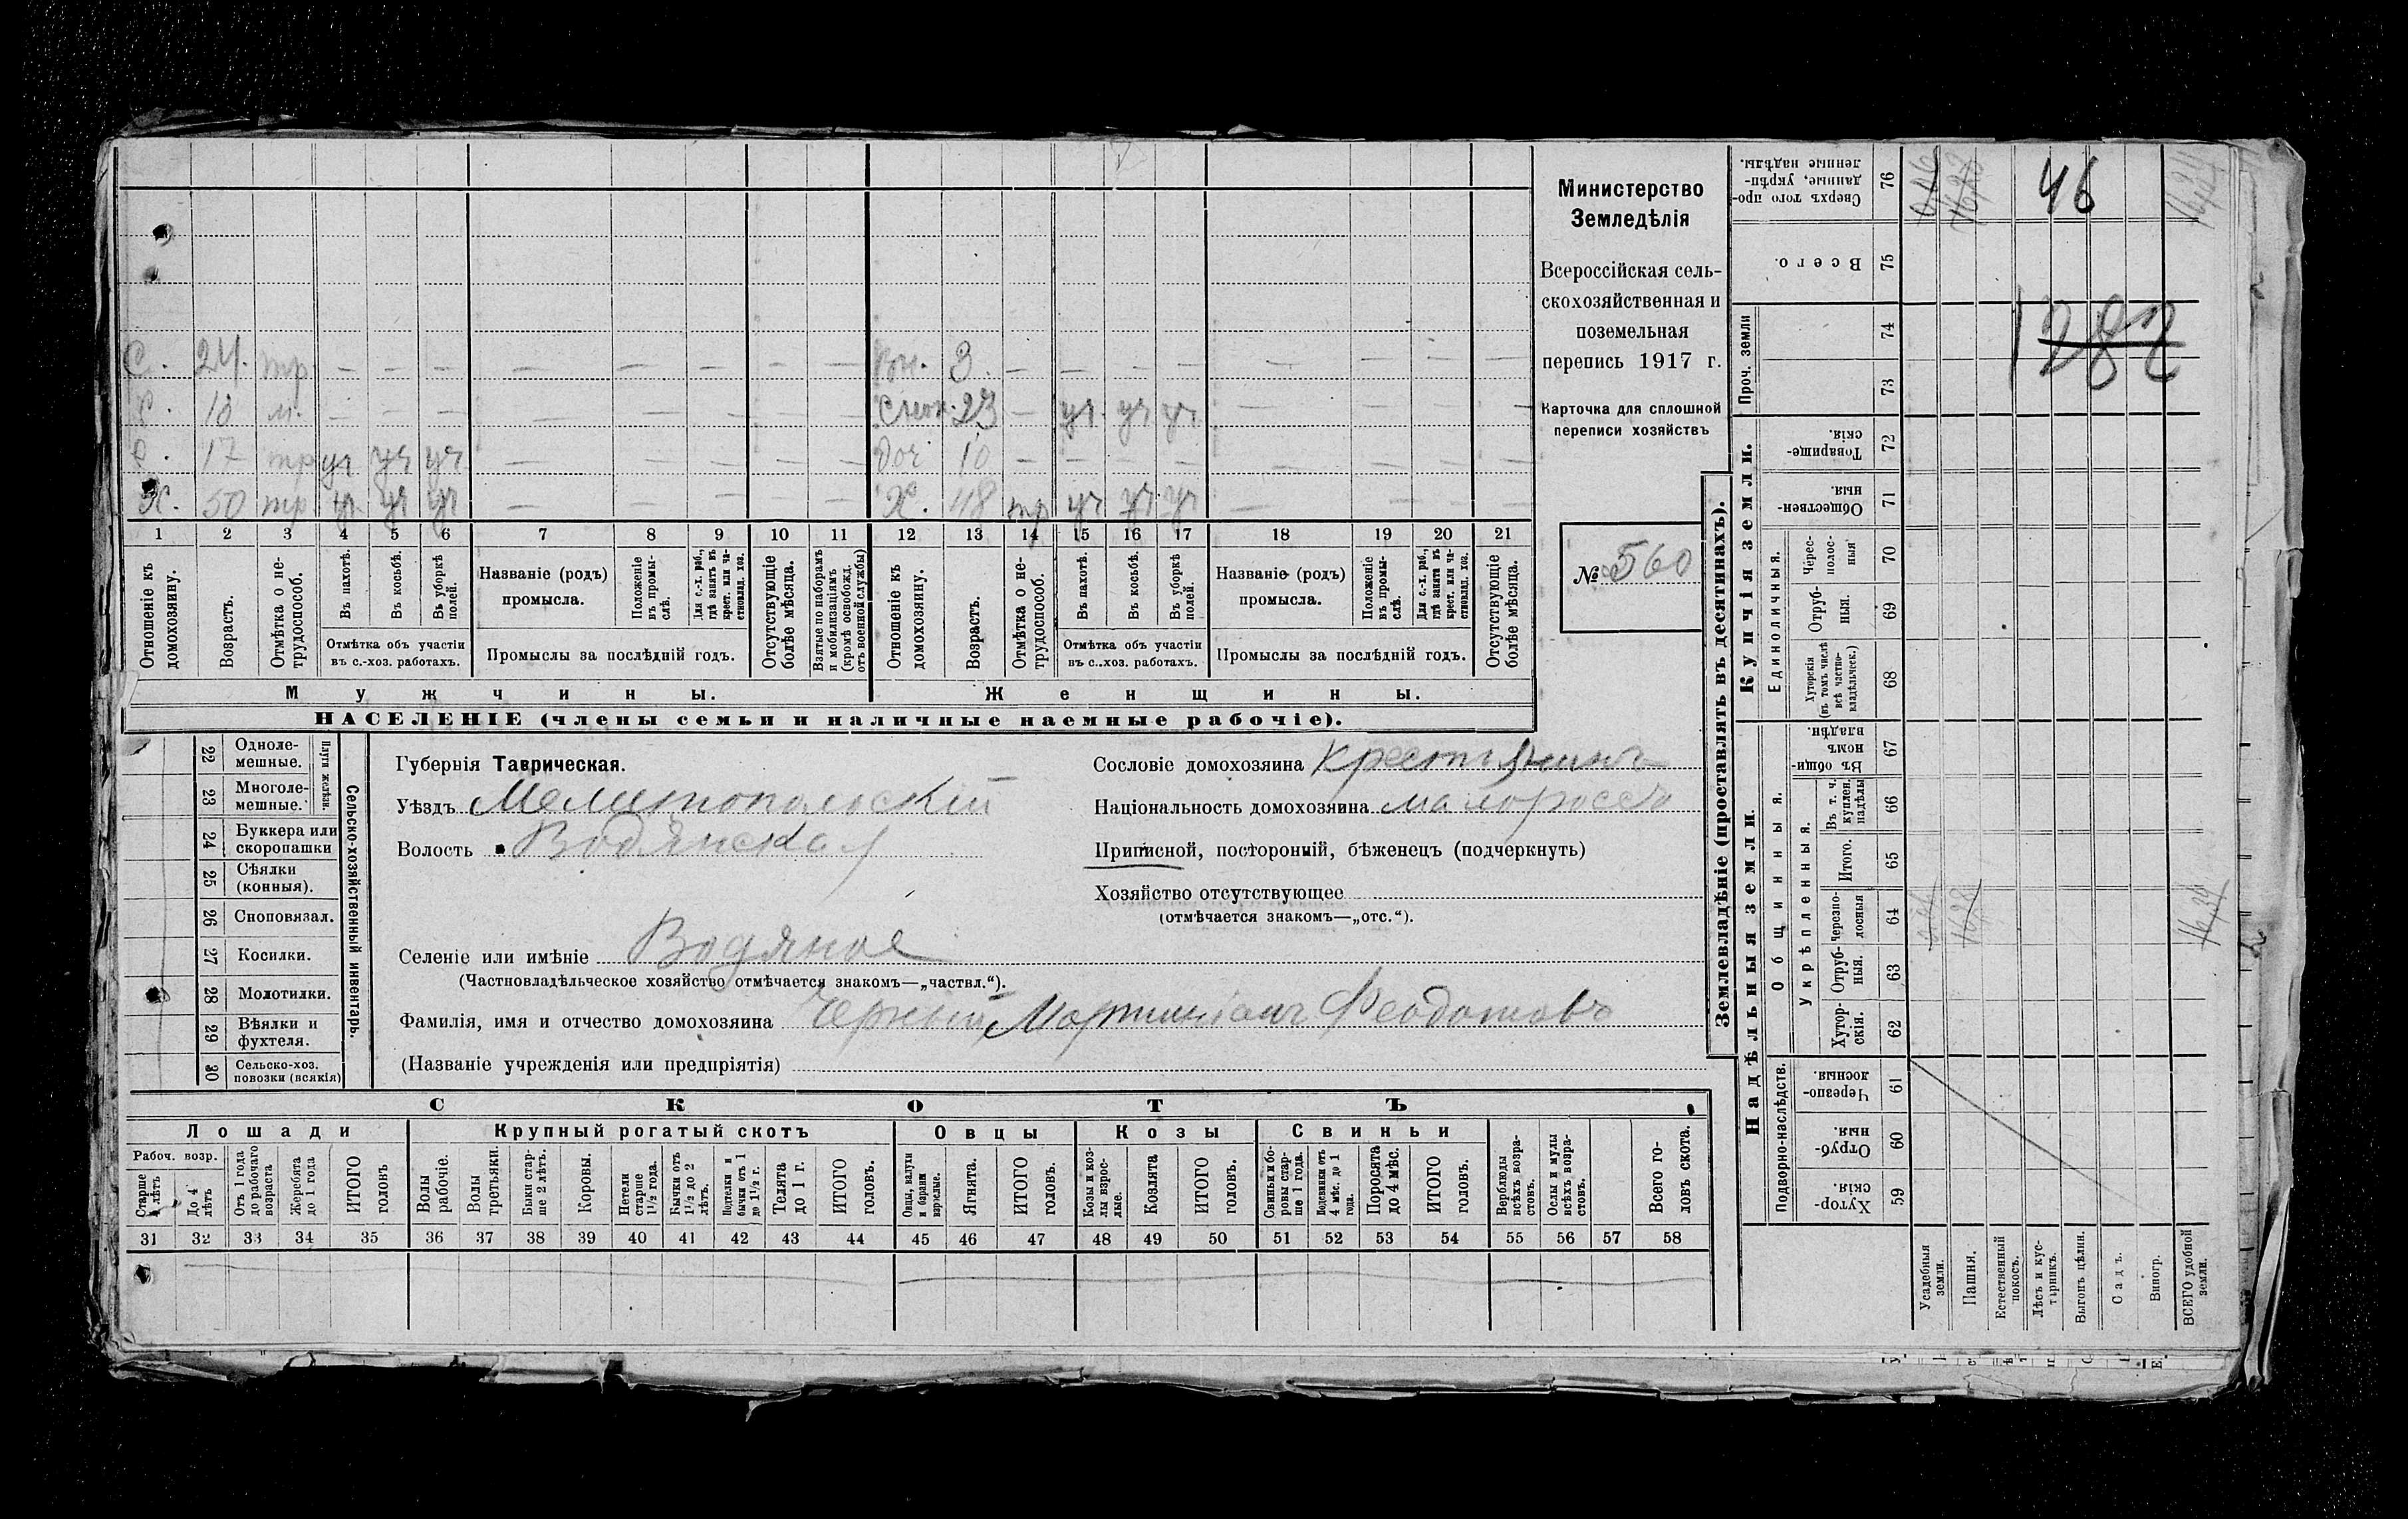 С. 24. тр — — — — — — — — Вн. 3. — — — — — — — —
С. 10 м. — — — — — — — — Снох. 23 — уч уч уч — — — —
С. 17 тр уч уч уч — — — — — Доч 10 — — — — — — — —
Х. 50 тр уч уч уч — — — — Х. 48 тр уч уч уч — — — —
1 2 3 4 5 6 7 8 9 10 11 12 13 14 15 16 17 18 19 20 21
Отношеніе къ домохозяину.
Возрастъ.
Отмѣтка о нетрудоспособ.
Въ пахотѣ.
Въ косьбѣ.
Въ уборкѣ полей.
Отмѣтка объ участіи
въ с.-хоз. работахъ.
Названіе (родъ)
промысла.
Положеніе въ промыслѣ.
Для с.-х. раб., гдѣ занятъ въ крест. или частновлад. хоз.
Промыслы за послѣдній годъ.
Отсутствующіе болѣе мѣсяца.
Взятые по наборамъ и мобилизаціямъ (кромѣ освобожд. отъ военной службы)
Отношеніе къ домохозяину.
Возрастъ.
Отмѣтка о нетрудоспособ.
Въ пахотѣ.
Въ косьбѣ.
Въ уборкѣ полей.
Отмѣтка объ участіи
въ с..хоз. работахъ.
Названіе (родъ)
промысла.
Положеніе въ промыслѣ.
Для с.-х. раб., гдѣ занята въ крест. или частновлад. хоз.
Промыслы за послѣдній годъ.
Отсутствующіе болѣе мѣсяца.
Мужчины. Женщины.
НАСЕЛЕНІЕ (члены семьи и наличные наемные рабочіе).
Министерство
Земледѣлія
Всероссійская сель-
скохозяйственная и
поземельная
перепись 1917 г.
Карточка для сплошной
переписи хозяйствъ
№ 560
22 Одноле-
мешные.
23 Многоле-
мешные.
Плуги желѣзн.
24 Буккера или
скоропашки
25 Сѣялки
(конныя).
26 Сноповязал.
27 Косилки.
28 Молотилки.
29 Вѣялки и
фухтеля.
30 Сельско-хоз.
повозки (всякія)
Сельско-хозяйственный инвентарь.
Губернія Таврическая.
Уѣздъ Мелитопольскій
Волость Водянская
Селеніе или имѣніе Водяное
(Частновладѣльческое хозяйство отмѣчается знакомъ—„частвл.“).
Фамилія, имя и отчество домохозяина Черный Мартиніанъ Феодотовъ
(Названіе учрежденія или предпріятія)
Сословіе домохозяина крестьянинъ
Національность домохозяина малороссъ
Приписной, посторонній, бѣженецъ (подчеркнуть)
Хозяйство отсутствующее
(отмѣчается знакомъ—„отс.“).
СКОТЪ
Лошади Крупный рогатый скотъ Овцы Козы Свиньи
Рабоч. возр.
Старше 4 лѣтъ
До 4 лѣтъ
Отъ 1 года до рабочаго возраста
Жеребята до 1 года
ИТОГО головъ
Волы рабочіе.
Волы третьяки.
Быки старше 2 лѣтъ.
Коровы.
Нетели старше 1½ года.
Бычки отъ 1½ до 2 лѣтъ.
Подтелки и бычки отъ 1 до 1½ г.
Телята до 1 г.
ИТОГО головъ.
Овцы, валухи и бараны взрослые.
Ягнята.
ИТОГО головъ.
Козы и козлы взрослые.
Козлята
ИТОГО головъ.
Свиньи и боровы старше 1 года.
Подсвинки отъ 4 мѣс. до 1 года.
Поросята до 4 мѣс.
ИТОГО головъ.
Верблюды всѣхъ возрастовъ.
Ослы и мулы всѣхъ возрастовъ.
Всего головъ скота.
31 32 33 34 35 36 37 38 39 40 41 42 43 44 45 46 47 48 49 50 51 52 53 54 55 56 57 58
Землевладѣніе (проставлять въ десятинахъ).
Надѣльныя земли.
Купчія земли.
Проч. земли
Общинныя.
Укрѣпленныя.
Единоличныя.
Подворно-наслѣдств.
Сверхъ того проданные, укрѣпленные надѣлы. 76
Всего. 75
74
73
Товарищескія. 72
Общественныя. 71
Черезполосныя 70
Отрубныя. 69
Хуторскія (въ томъ числѣ всѣ частновладѣльческ.) 68
Въ общинномъ владѣн. 67
Въ т. ч. куплен. надѣлы 66
Итого. 65
Черезполосныя 64
Отрубныя. 63
Хуторскія. 62
Черезполосныя. 61
Отрубныя. 60
Хуторскія. 59
Усадебныя земли.
Пашня.
Естественный покосъ.
Лѣсъ и кустарникъ.
Выгонъ цѣлин.
Садъ.
Виногр.
ВСЕГО удобной земли.
46
1282